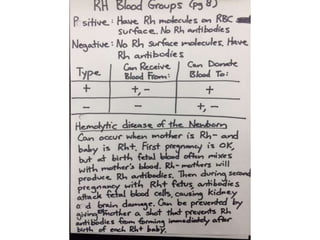 RH Blood Groups (pg 8)
Positive: Have Rh molecules on RBC
surface. No Rh antibodies
Negative: No Rh surface molecules. Have
Rh antibodies
Type | Can Receive Blood From: | Can Donate Blood To:
+ | +, - | +
- | - | +, -
Hemolytic disease of the Newborn
Can occur when mother is Rh- and
baby is Rh+. First pregnancy is OK,
but at birth fetal blood often mixes
with mother's blood. Rh- mothers will
produce Rh antibodies. Then during second
pregnancy with Rh+ fetus, antibodies
attack fetal blood cells, causing kidney
and brain damage. Can be prevented by
giving mother a shot that prevents Rh
antibodies from forming immediately after
birth of each Rh+ baby.